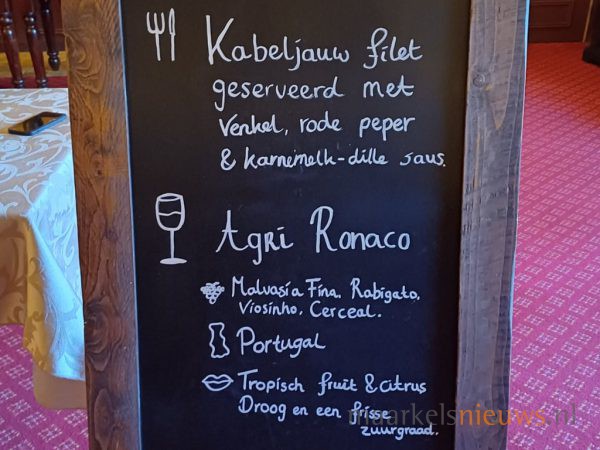 Kabeljauw filet
geserveerd met
Venkel, rode peper
& karnemelk-dille saus.
Agri Ronaco
Malvasia Fina, Rabigato,
Viosinho, Cerceal.
Portugal
Tropisch fruit & citrus
Droog en een frisse
zuurgraad.
maarkelsnieuws.nl